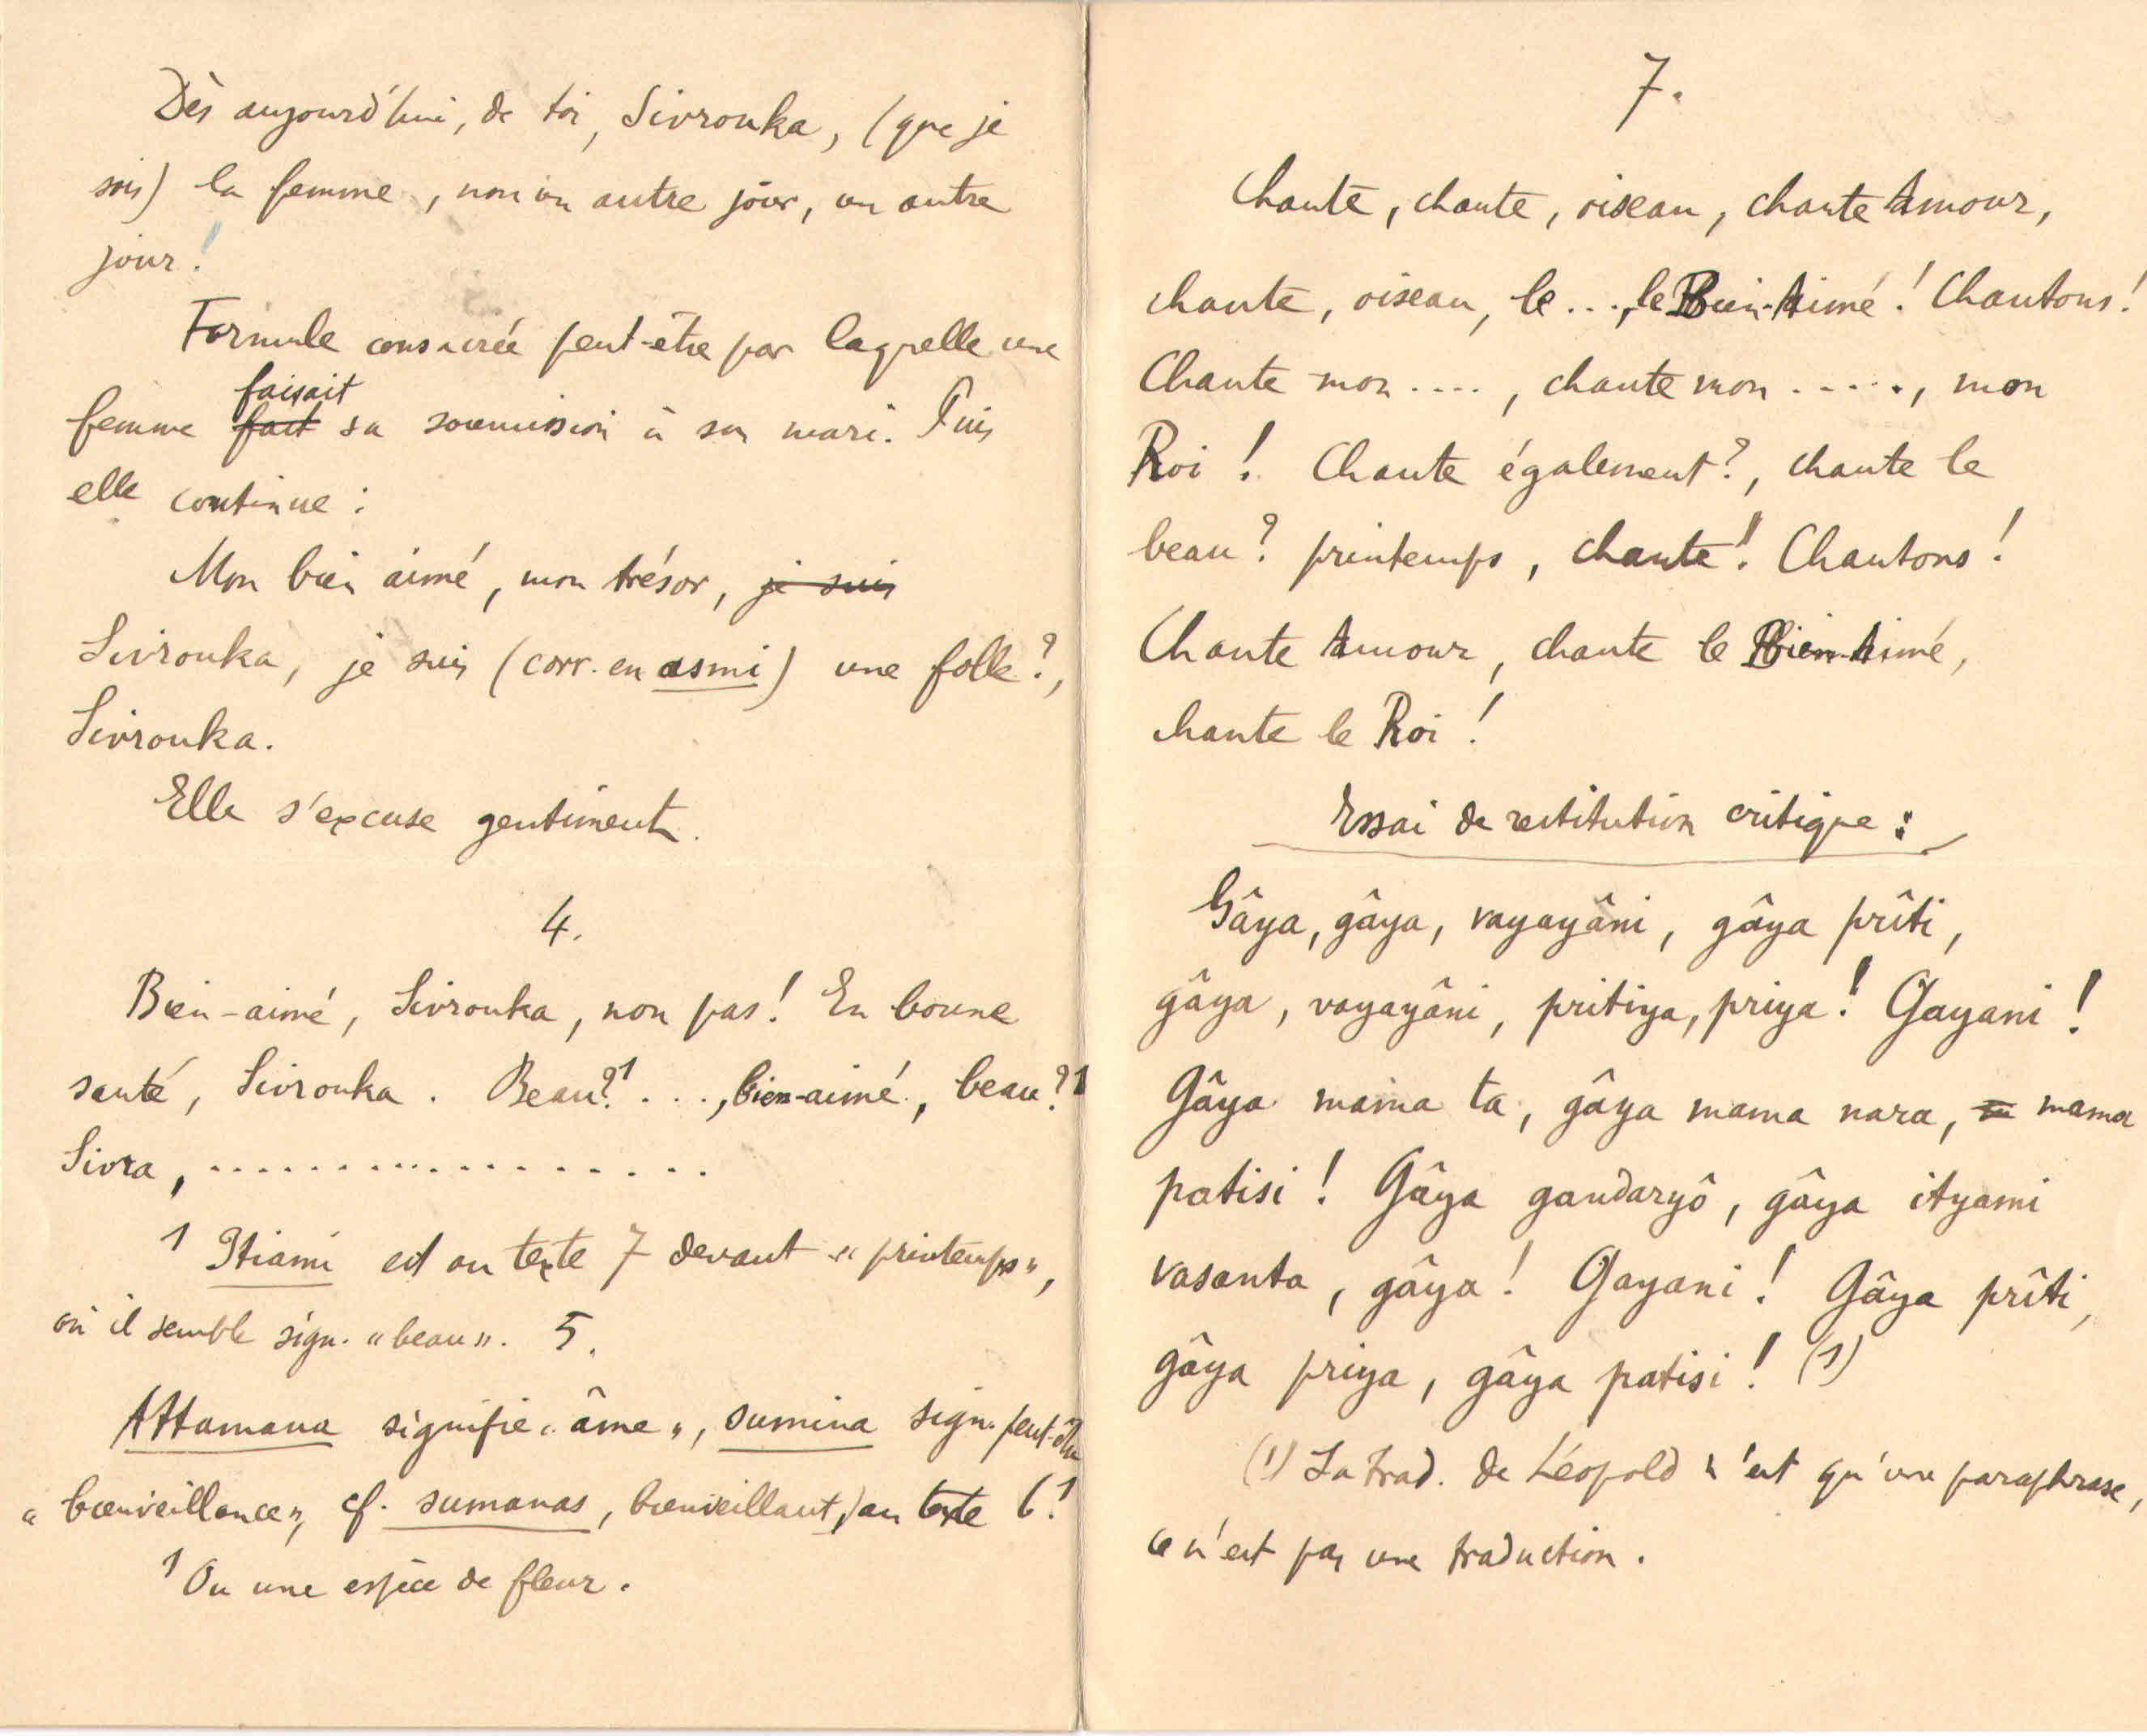 Dès aujourd'hui, de toi, Sivrouka, (que je
sois) la femme, non un autre jour, un autre
jour!
Formule consacrée peut-être par laquelle une
faisait
femme fait sa soumission à son mari. Puis
elle continue :
Mon bien aimé, mon trésor, je suis
Sivrouka, je suis (corr. en asmi) une folle?,
Sivrouka.
Elle s'excuse gentiment.
4.
Bien-aimé, Sivrouka, non pas! En bonne
santé, Sivrouka. Beau?¹ ..., bien-aimé, beau?¹
Sivra, ..................
1 Itiami est au texte 7 devant « printemps »,
où il semble sign. « beau ». 5.
Attamana signifie « âme », sumina sign. peut-être
« bienveillance », cf. sumanas, bienveillant, au texte 6.¹
1 Ou une espèce de fleur.
7.
Chante, chante, oiseau, chante Amour,
chante, oiseau, le ..., le Bien-Aimé! Chantons!
Chante mon ...., chante mon ....., mon
Roi! Chante également?, chante le
beau? printemps, chante! Chantons!
Chante Amour, chante le Bien-Aimé,
chante le Roi!
Essai de restitution critique :
Gâya, gâya, vayayâni, gâya prîti,
gâya, vayayâni, pritiya, priya! Gayani!
Gâya mama ta, gâya mama nara, mama
patisi! Gâya gandaryô, gâya ityami
vasanta, gâya! Gayani! Gâya prîti,
gâya priya, gâya patisi! (1)
(1) La trad. de Léopold n'est qu'une paraphrase,
ce n'est pas une traduction.